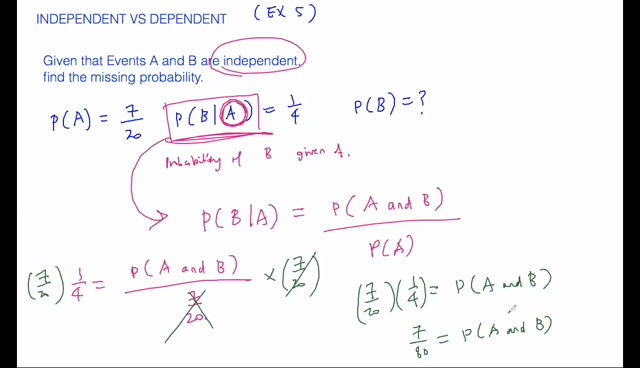 INDEPENDENT VS DEPENDENT (EX 5)
Given that Events A and B are independent,
find the missing probability.
P(A) = 7/20 P(B|A) = 1/4 P(B) = ?
Probability of B given A.
P(B|A) = P(A and B) / P(A)
(7/20) 1/4 = P(A and B) / 7/20 × (7/20)
(7/20)(1/4) = P(A and B)
7/80 = P(A and B)